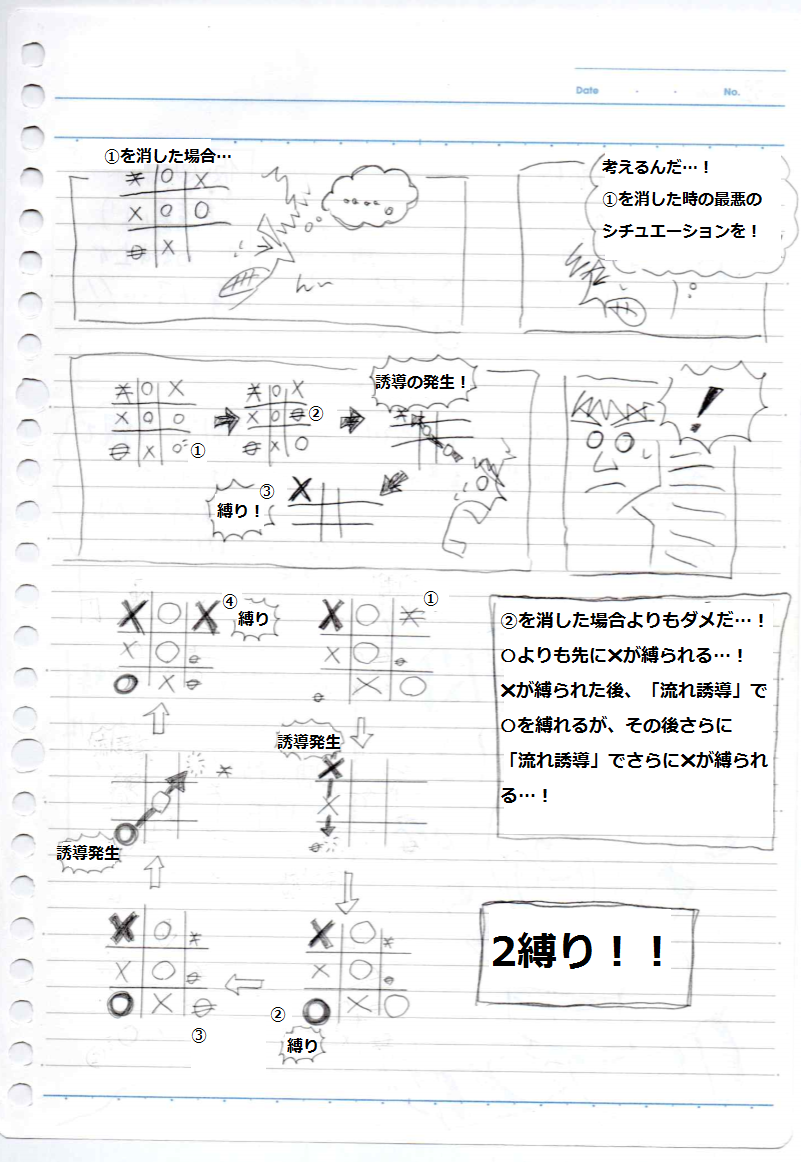 Date ・ ・ No.
①を消した場合…
考えるんだ…！
①を消した時の最悪の
シチュエーションを！
誘導の発生！
②
①
③
縛り！
！
④
縛り
①
②を消した場合よりもダメだ…！
〇よりも先に✕が縛られる…！
✕が縛られた後、「流れ誘導」で
〇を縛れるが、その後さらに
「流れ誘導」でさらに✕が縛られ
る…！
誘導発生
誘導発生
2縛り！！
②
縛り
③